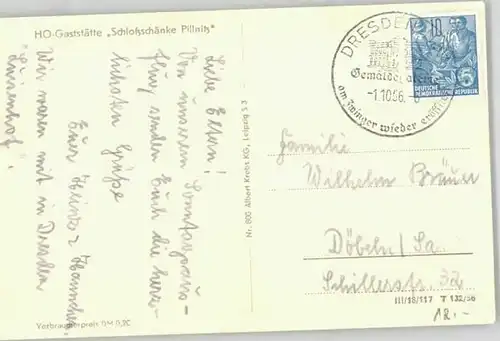 HO-Gaststätte „Schloßschänke Pillnitz"
Liebe Eltern!
Von unserem Sonntagsaus-
flug senden Euch die herz-
lichsten Grüße
Euer Heinz & Hannchen
Wir waren mit in Dresden
"Luisenhof"
Verbraucherpreis DM 0,20
Nr. 800 Albert Krebs KG, Leipzig S 3
DRESDEN
Gemäldegalerie
-1.10.56
am Zwinger wieder eröffnet
DEUTSCHE
DEMOKRATISCHE
Familie
Wilhelm Bräuer
Döbeln/Sa.
Schillerstr. 32
III/18/117 T 132/56
12.-